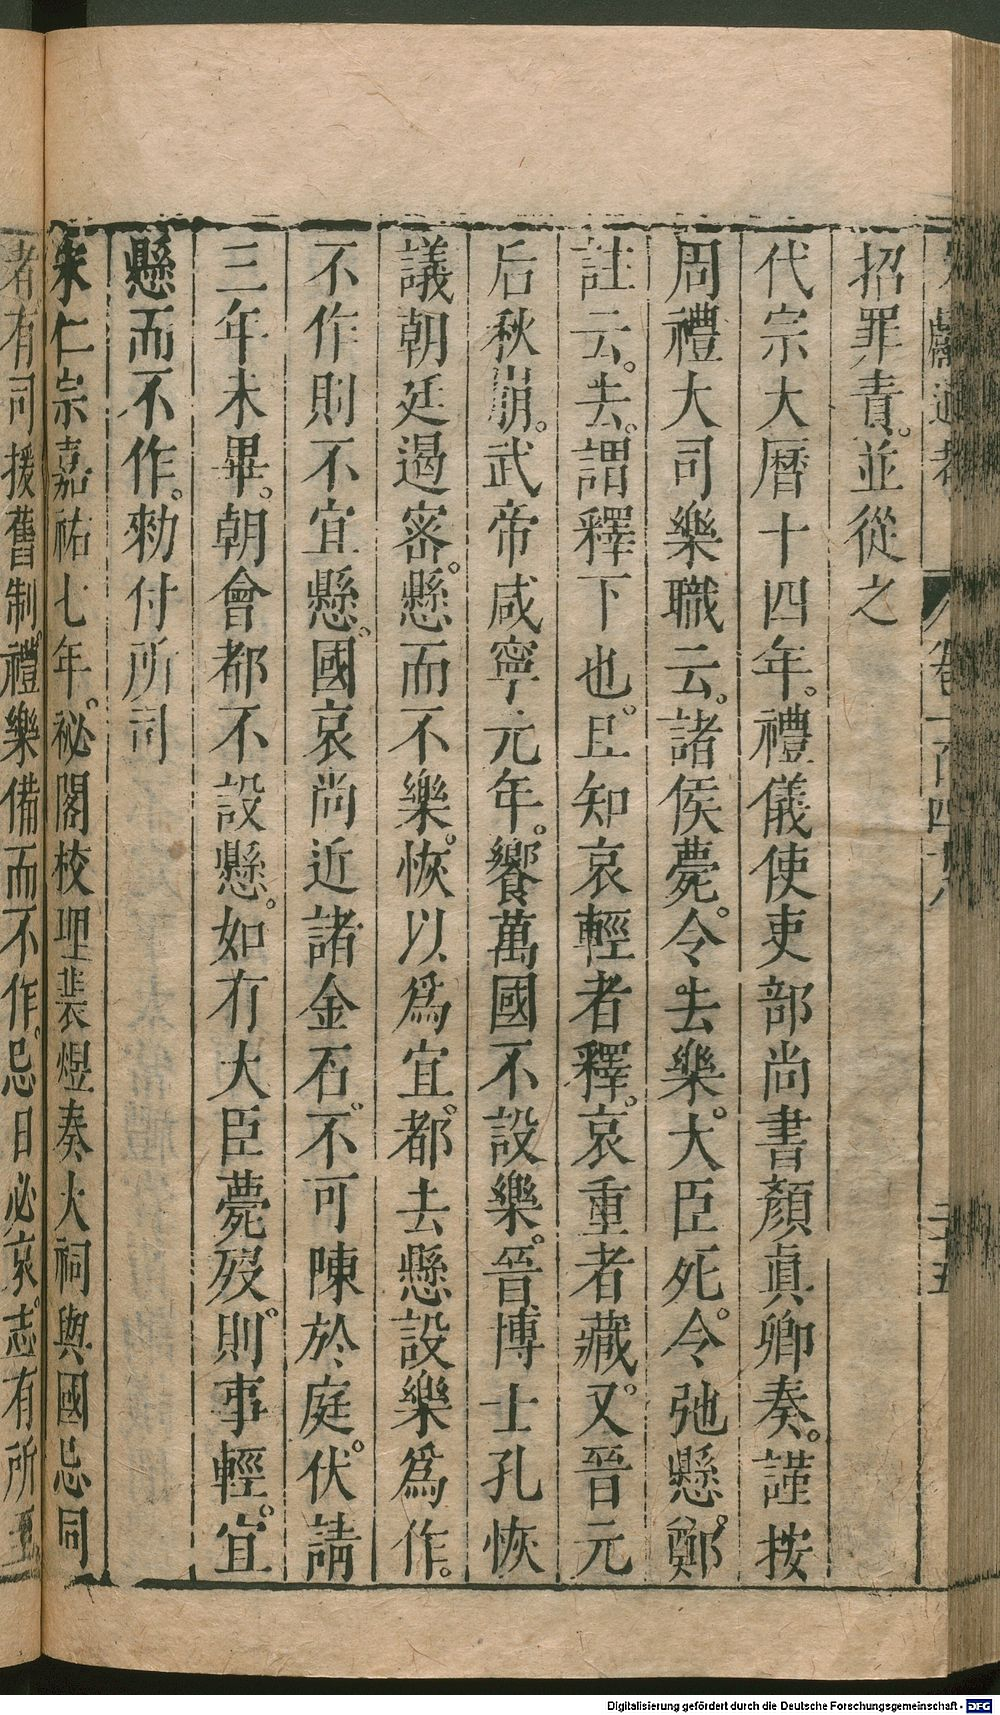 文獻通考 卷一百四十八 二十五
招罪責。並從之
代宗大曆十四年。禮儀使吏部尚書顏眞卿奏。謹按
周禮大司樂職云。諸侯薨。令去樂。大臣死。令弛懸。鄭
註云。去。謂釋下也。且知哀輕者釋。哀重者藏。又晉元
后秋崩。武帝咸寧元年。饗萬國不設樂。晉博士孔恢
議朝廷遏密。懸而不樂。恢以爲宜。都去懸設樂爲作。
不作則不宜懸。國哀尚近諸金石。不可陳於庭。伏請
三年未畢。朝會都不設懸。如有大臣薨歿。則事輕。宜
懸而不作。勅付所司
宋仁宗嘉祐七年。祕閣校理裴煜奏大祠與國忌同
者有司援舊制。禮樂備而不作。忌日必哀。志有所至
Digitalisierung gefördert durch die Deutsche Forschungsgemeinschaft - DFG